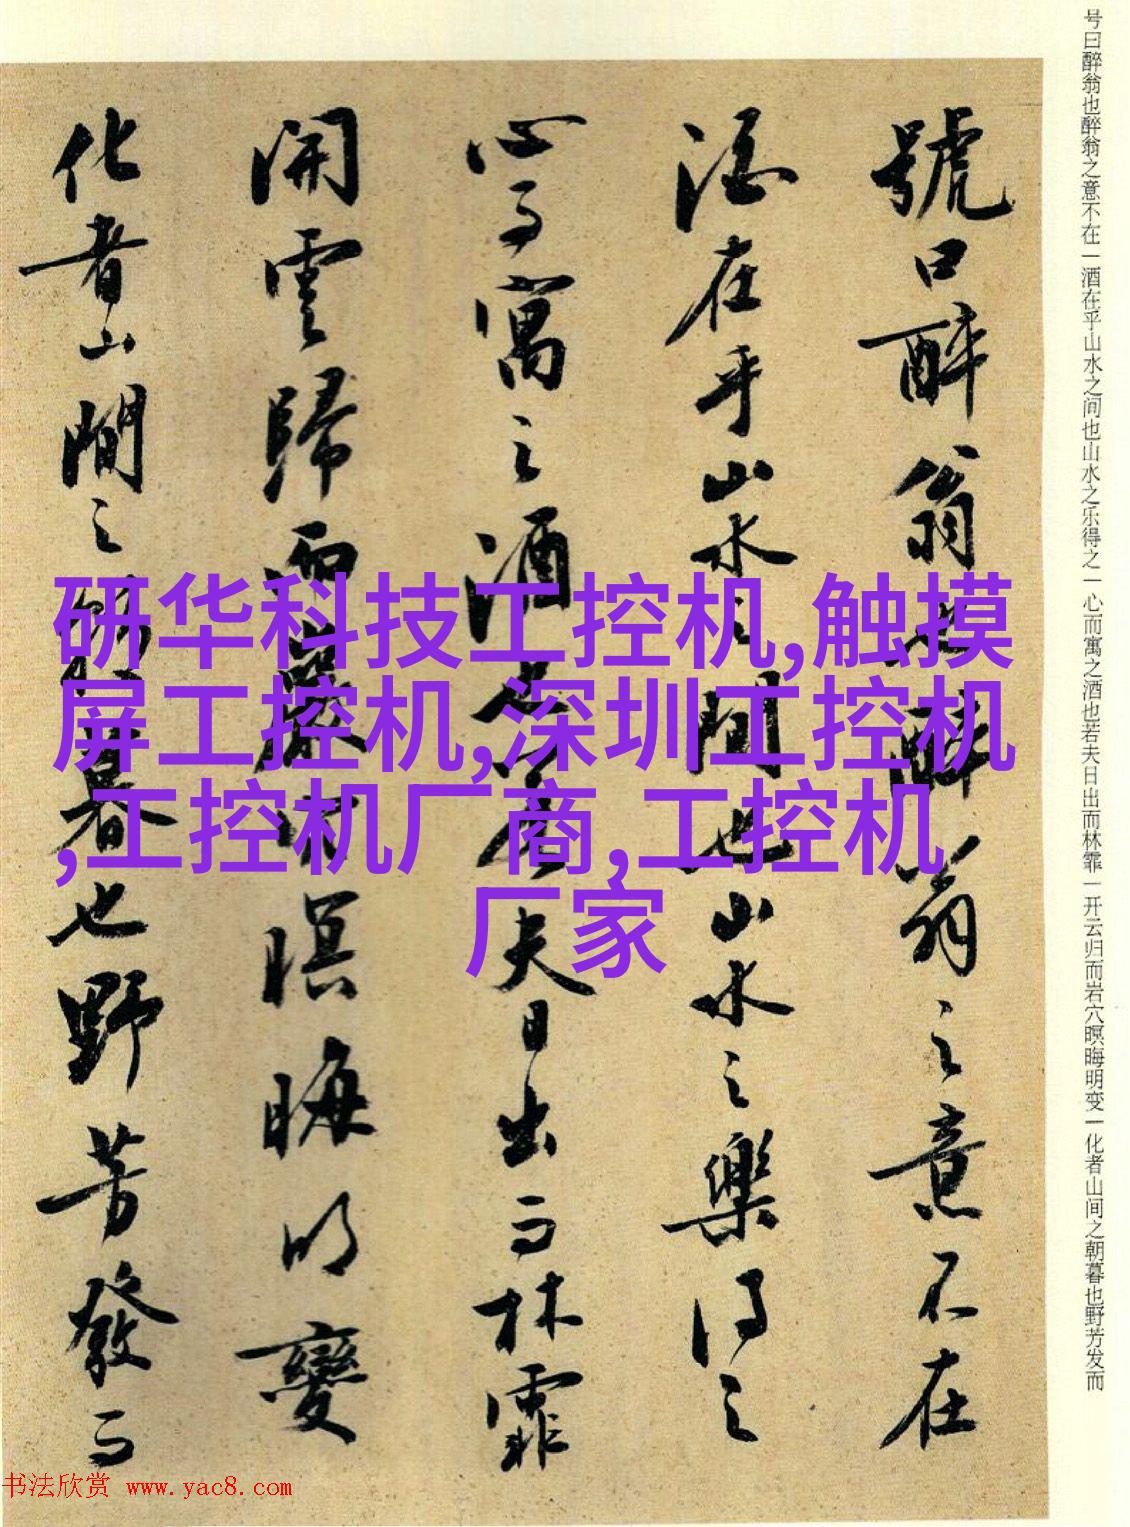 号曰醉翁也醉翁之意不在一酒在乎山水之间也山水之乐得之一心而寓之酒也若夫日出而林霏一开云归而岩穴暝晦明变一化者山间之朝暮也野芳发而
號曰醉翁也醉翁之意不在
酒在乎山水之間也山水之樂得之
心而寓之酒也若夫日出而林霏
開雲歸而巖穴暝晦明變
化者山間之朝暮也野芳發而
研华科技工控机,触摸
屏工控机,深圳工控机
,工控机厂商,工控机
厂家
书法欣赏 www.yac8.com